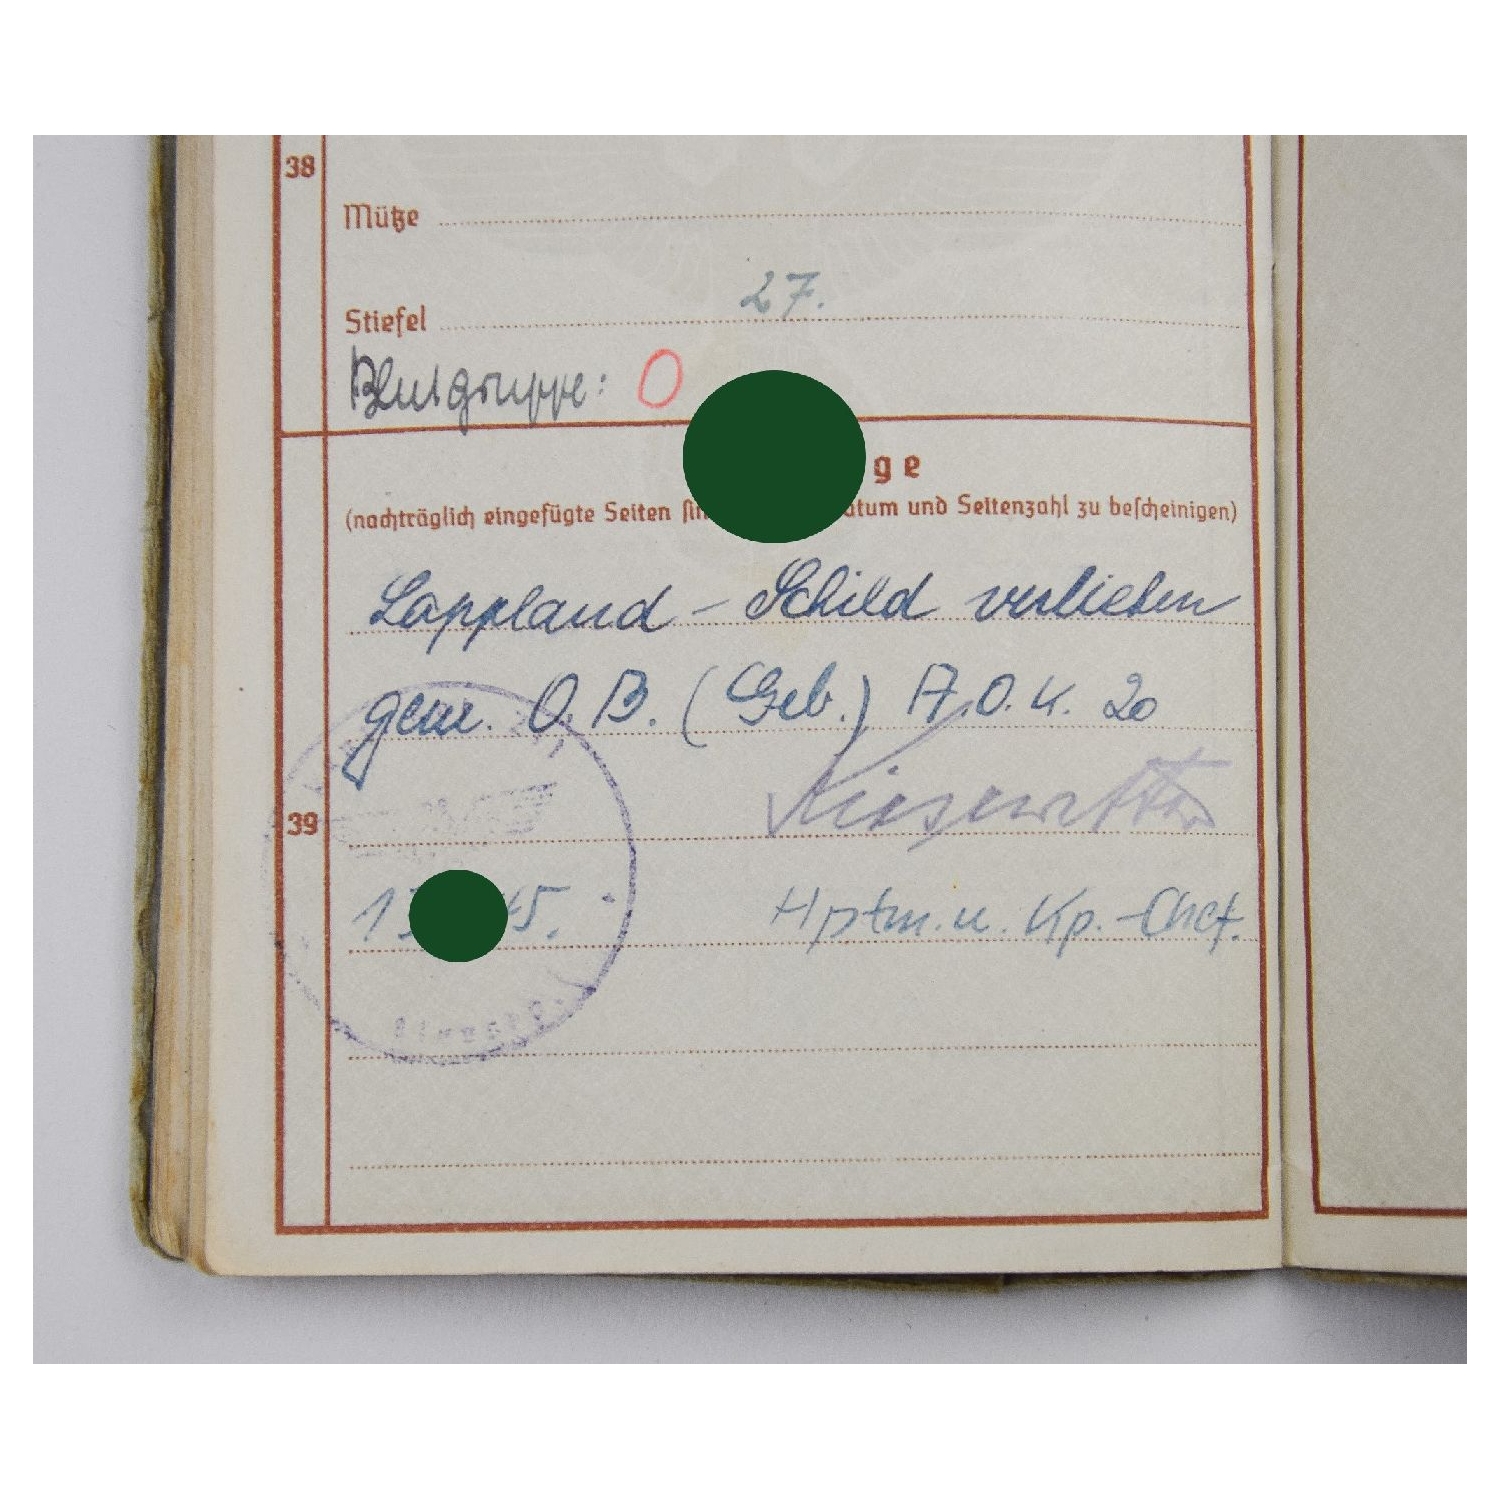 38
Mütze
27.
Stiefel
Blutgruppe: O
ge
(nachträglich eingefügte Seiten sin atum und Seitenzahl zu bescheinigen)
Lappland - Schild verliehen
gem. O. B. (Geb.) A.O.K. 20
39
Kiesewetter
1 45. Hptm. u. Kp.-Chef.